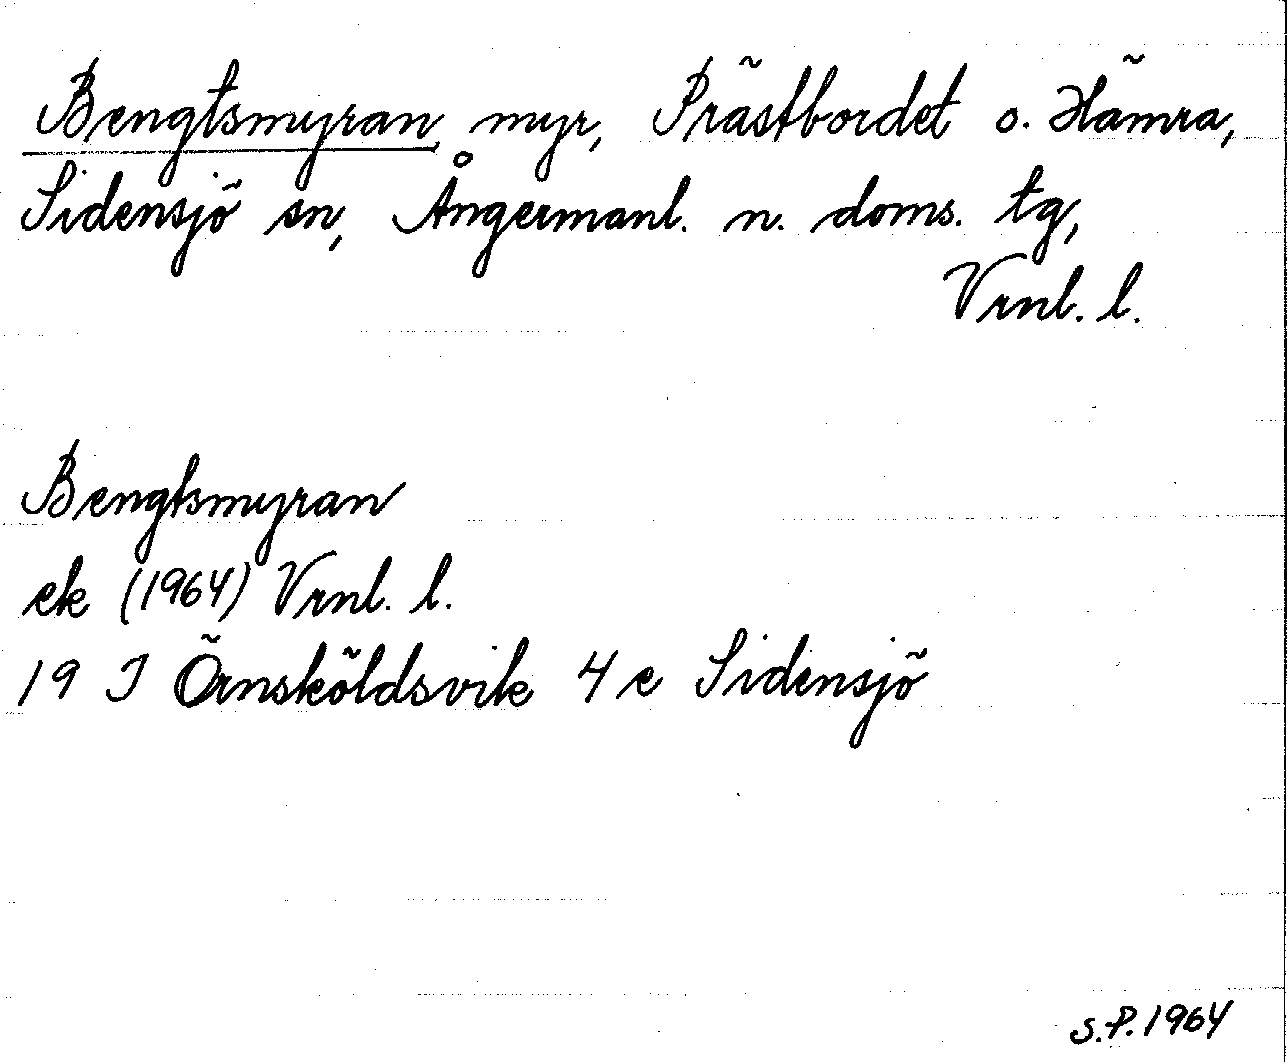 Bengtsmyran, myr, Prästbordet o. Hämra,
Sidensjö sn, Ångermanl. n. doms. tg,
Vrnl. l.
Bengtsmyran
ek (1964) Vrnl. l.
19 J Örnsköldsvik 4 e Sidensjö
S.P. 1964